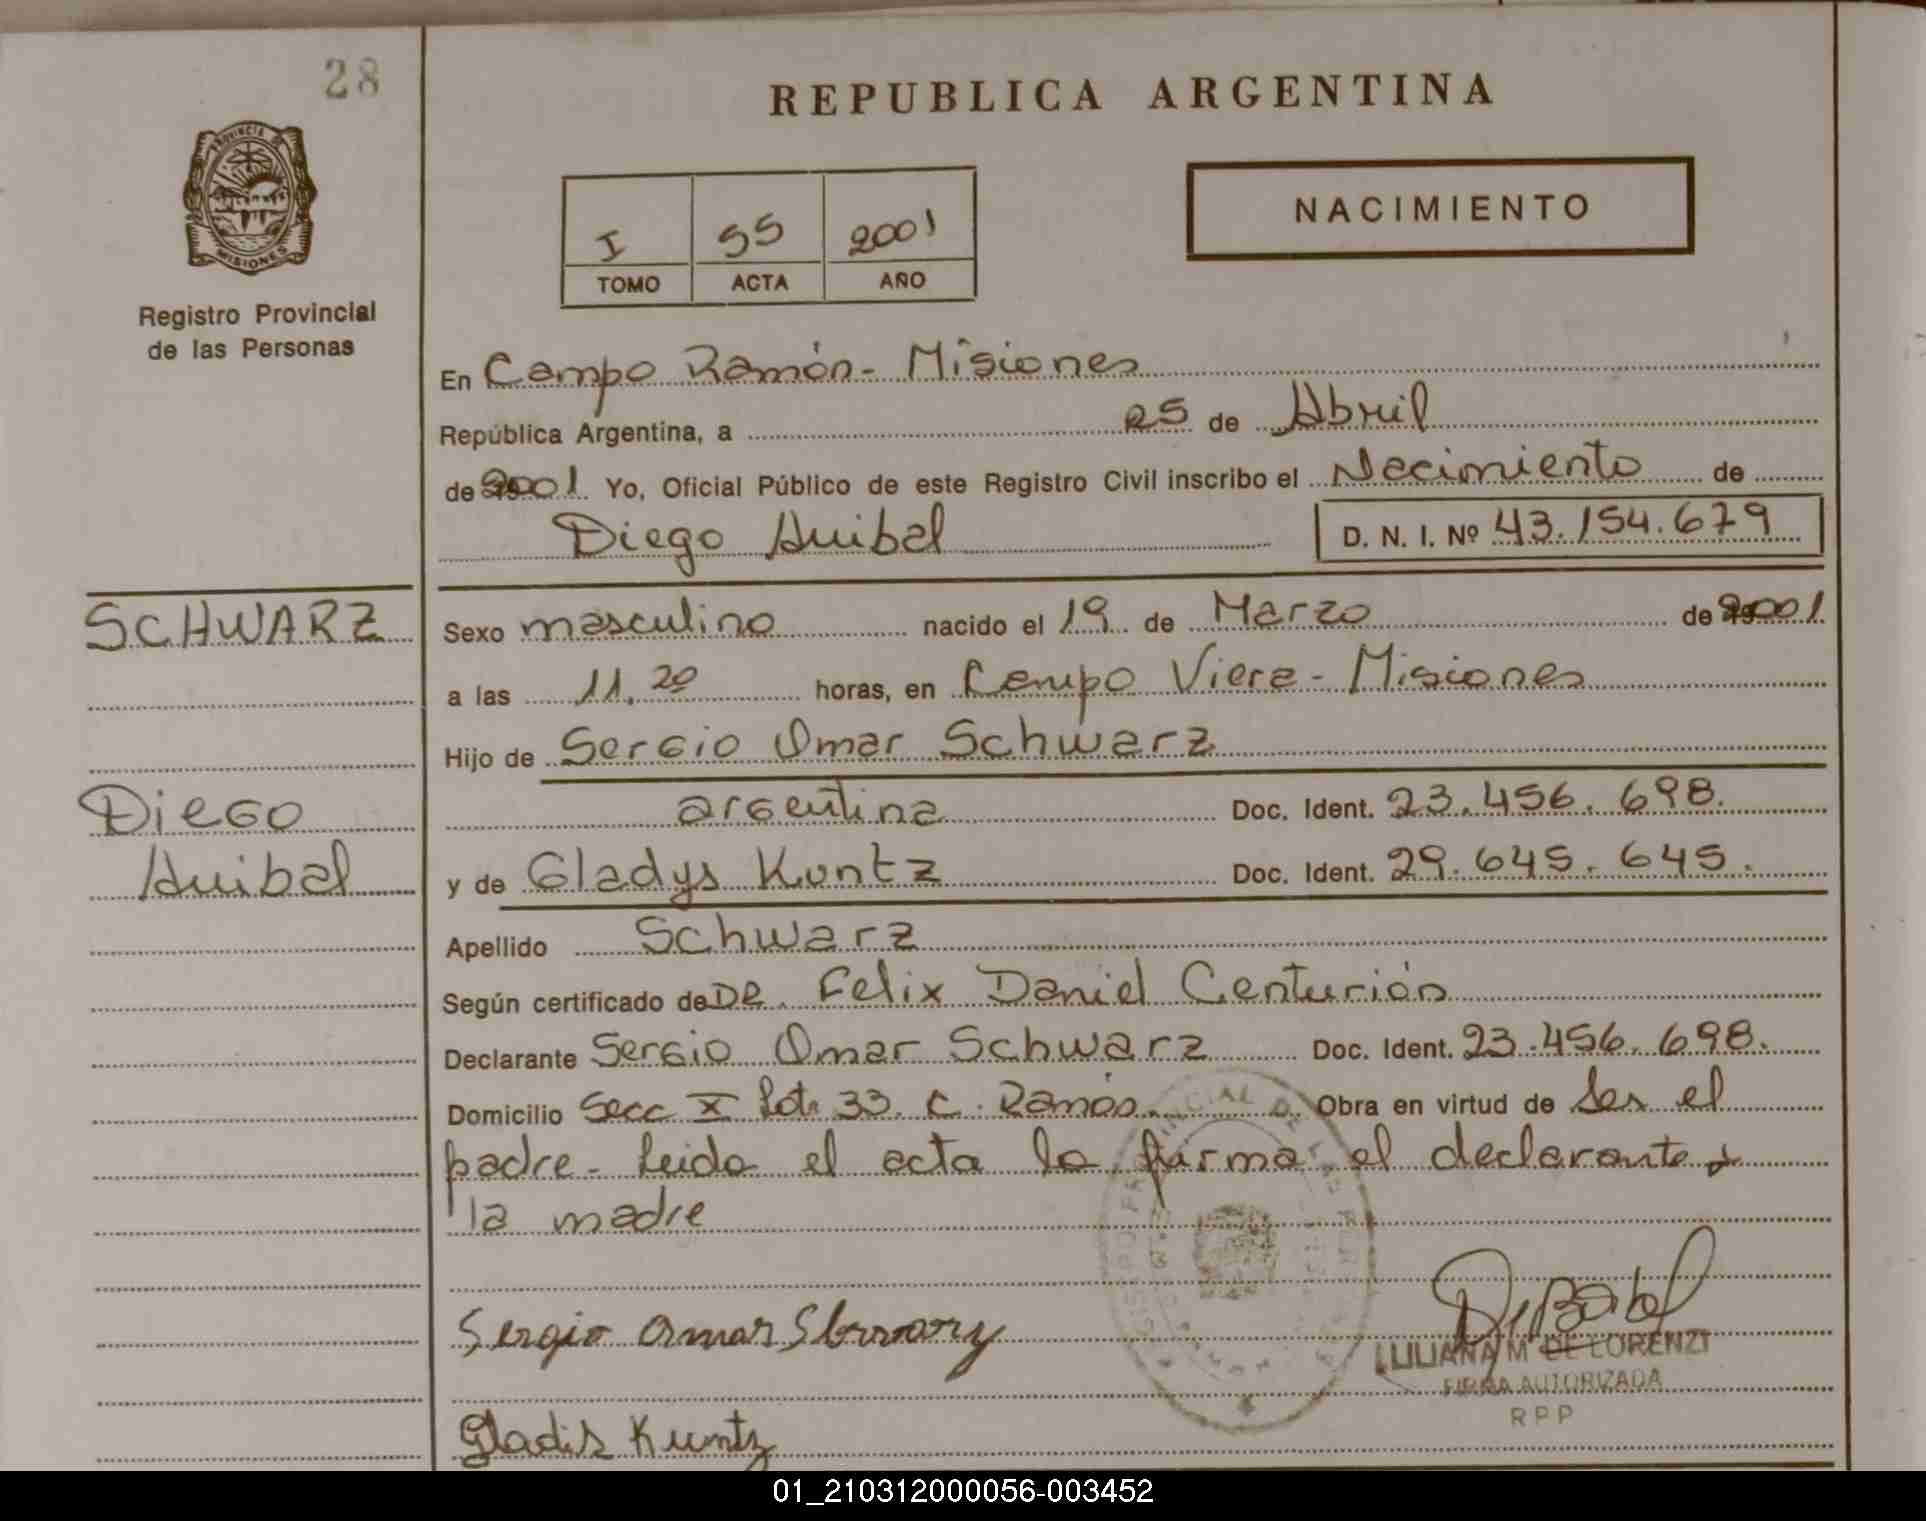 28
REPUBLICA ARGENTINA
PROVINCIA DE
MISIONES
Registro Provincial
de las Personas
NACIMIENTO
I 55 2001
TOMO ACTA AÑO
En Campo Ramón - Misiones
República Argentina, a 25 de Abril
de 2001 Yo, Oficial Público de este Registro Civil inscribo el Nacimiento de
Diego Anibal D. N. I. Nº 43.154.679
SCHWARZ
Sexo masculino nacido el 19 de Marzo de 2001
a las 11,20 horas, en Campo Viera - Misiones
Hijo de Sergio Omar Schwarz
argentina Doc. Ident. 23.456.698.
Diego
Anibal
y de Gladys Kuntz Doc. Ident. 29.645.645.
Apellido Schwarz
Según certificado de DR. Felix Daniel Centurión
Declarante Sergio Omar Schwarz Doc. Ident. 23.456.698.
Domicilio Secc X Lote 33. C. Ramón. Obra en virtud de Ser el
padre - Leida el acta la firma el declarante y
la madre
Sergio Omar
LILIANA M DE LORENZI
FIRMA AUTORIZADA
RPP
Gladis Kuntz
01_210312000056-003452